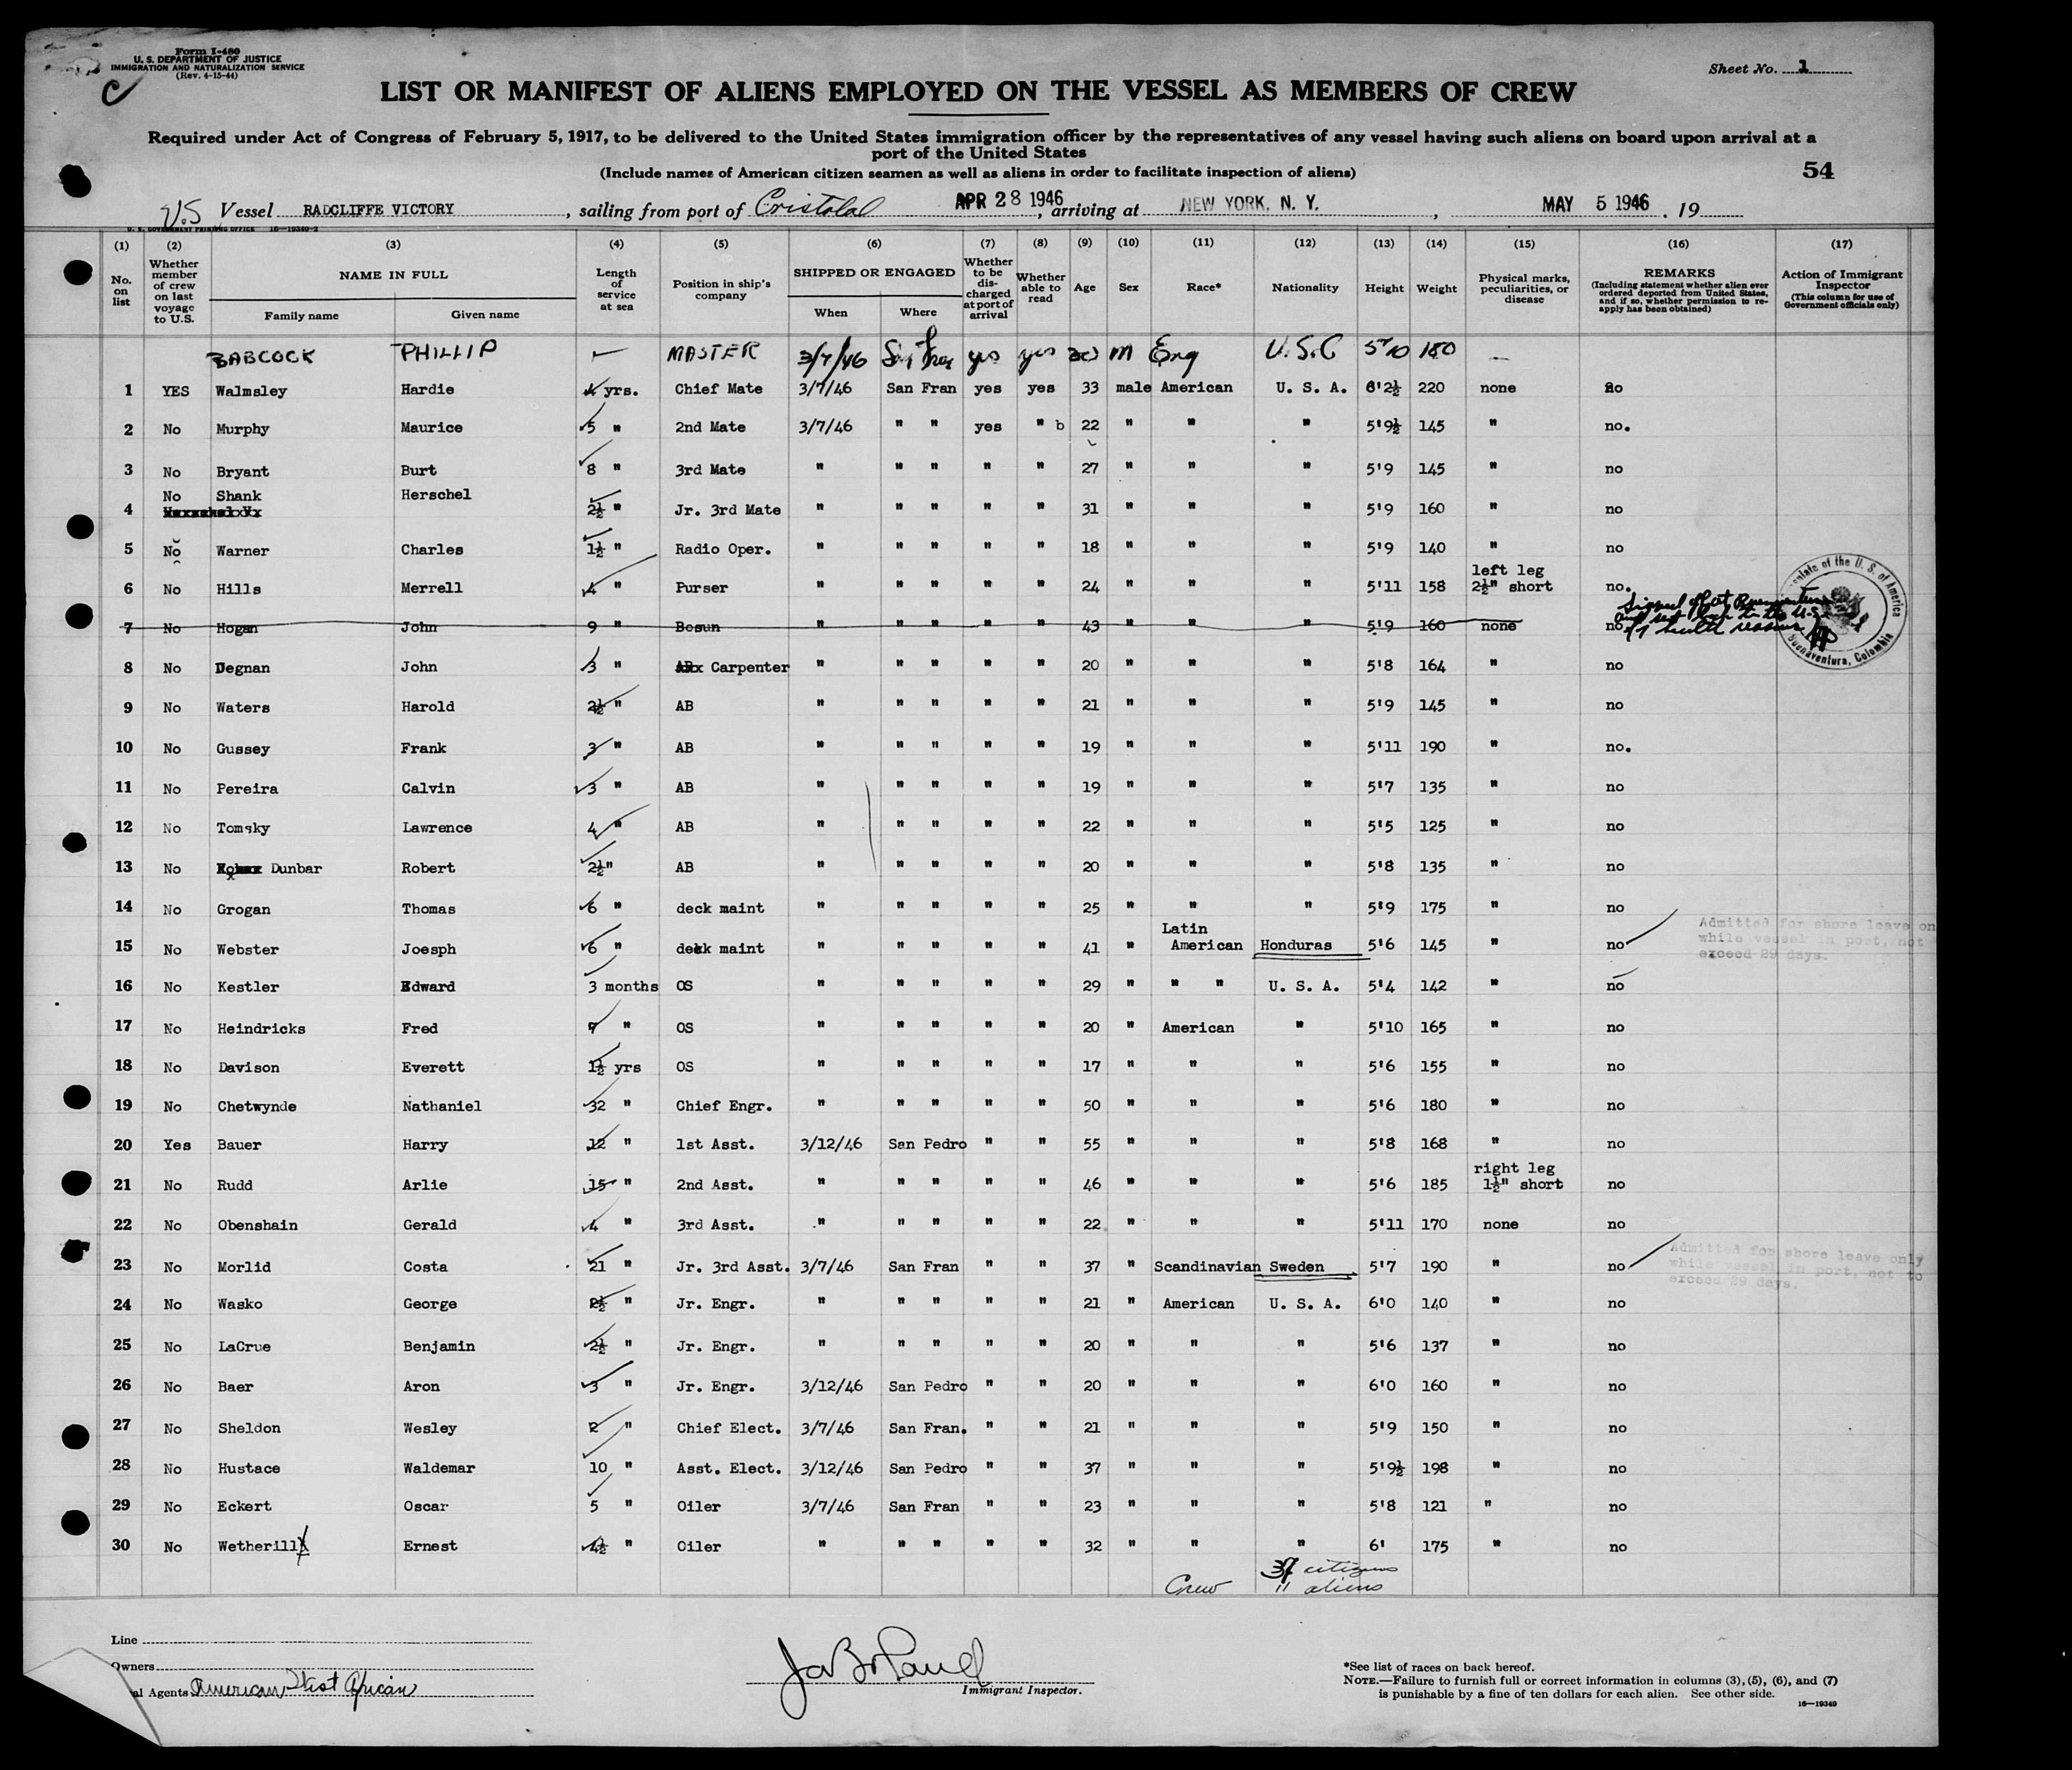 Form I-480
U. S. DEPARTMENT OF JUSTICE
IMMIGRATION AND NATURALIZATION SERVICE
(Rev. 4-15-44)
C
Sheet No. 1
LIST OR MANIFEST OF ALIENS EMPLOYED ON THE VESSEL AS MEMBERS OF CREW
Required under Act of Congress of February 5, 1917, to be delivered to the United States immigration officer by the representatives of any vessel having such aliens on board upon arrival at a
port of the United States
(Include names of American citizen seamen as well as aliens in order to facilitate inspection of aliens)
54
U.S Vessel RADCLIFFE VICTORY, sailing from port of Cristobal APR 28 1946, arriving at NEW YORK, N. Y., MAY 5 1946, 19
U. S. GOVERNMENT PRINTING OFFICE 16—19349-2
(1) (2) (3) (4) (5) (6) (7) (8) (9) (10) (11) (12) (13) (14) (15) (16) (17)
No. on list
Whether member of crew on last voyage to U.S.
NAME IN FULL
Family name Given name
Length of service at sea
Position in ship's company
SHIPPED OR ENGAGED
When Where
Whether to be discharged at port of arrival
Whether able to read
Age
Sex
Race*
Nationality
Height
Weight
Physical marks, peculiarities, or disease
REMARKS
(Including statement whether alien ever ordered deported from United States, and if so, whether permission to reapply has been obtained)
Action of Immigrant Inspector
(This column for use of Government officials only)
BABCOCK PHILLIP — MASTER 3/7/46 San Fran yes yes 30 M Eng U.S.C 5'10 180 —
1 YES Walmsley Hardie 4 yrs. Chief Mate 3/7/46 San Fran yes yes 33 male American U. S. A. 6'2½ 220 none no
2 No Murphy Maurice 5 " 2nd Mate 3/7/46 " " yes " b 22 " " " 5'9½ 145 " no.
3 No Bryant Burt 8 " 3rd Mate " " " " " 27 " " " 5'9 145 " no
4 No Shank Herschel 2½ " Jr. 3rd Mate " " " " " 31 " " " 5'9 160 " no
5 No Warner Charles 1½ " Radio Oper. " " " " " 18 " " " 5'9 140 " no
6 No Hills Merrell 4 " Purser " " " " " 24 " " " 5'11 158 left leg 2½" short no.
7 No Hogan John 9 " Bosun " " " " " 43 " " " 5'9 160 none no
Signed off at Buenaventura
and sent back to the U.S.
of health reasons
Consulate of the U. S. of America
Buenaventura, Colombia
8 No Degnan John 3 " Carpenter " " " " " 20 " " " 5'8 164 " no
9 No Waters Harold 2½ " AB " " " " " 21 " " " 5'9 145 " no
10 No Gussey Frank 3 " AB " " " " " 19 " " " 5'11 190 " no.
11 No Pereira Calvin 3 " AB " " " " " 19 " " " 5'7 135 " no
12 No Tomsky Lawrence 4 " AB " " " " " 22 " " " 5'5 125 " no
13 No Dunbar Robert 2½" AB " " " " " 20 " " " 5'8 135 " no
14 No Grogan Thomas 6 " deck maint " " " " " 25 " " " 5'9 175 " no
15 No Webster Joesph 6 " deck maint " " " " " 41 " Latin American Honduras 5'6 145 " no
Admitted for shore leave on
while vessel in port, not
exceed 29 days.
16 No Kestler Edward 3 months OS " " " " " 29 " " " U. S. A. 5'4 142 " no
17 No Heindricks Fred 7 " OS " " " " " 20 " American " 5'10 165 " no
18 No Davison Everett 1½ yrs OS " " " " " 17 " " " 5'6 155 " no
19 No Chetwynde Nathaniel 32 " Chief Engr. " " " " " 50 " " " 5'6 180 " no
20 Yes Bauer Harry 12 " 1st Asst. 3/12/46 San Pedro " " 55 " " " 5'8 168 " no
21 No Rudd Arlie 15 " 2nd Asst. " " " " " 46 " " " 5'6 185 right leg 1½" short no
22 No Obenshain Gerald 4 " 3rd Asst. " " " " " 22 " " " 5'11 170 none no
23 No Morlid Costa 21 " Jr. 3rd Asst. 3/7/46 San Fran " " 37 " Scandinavian Sweden 5'7 190 " no
Admitted for shore leave only
while vessel in port, not to
exceed 29 days.
24 No Wasko George 2½ " Jr. Engr. " " " " " 21 " American U. S. A. 6'0 140 " no
25 No LaCrue Benjamin 2½ " Jr. Engr. " " " " " 20 " " " 5'6 137 " no
26 No Baer Aron 3 " Jr. Engr. 3/12/46 San Pedro " " 20 " " " 6'0 160 " no
27 No Sheldon Wesley 2 " Chief Elect. 3/7/46 San Fran. " " 21 " " " 5'9 150 " no
28 No Hustace Waldemar 10 " Asst. Elect. 3/12/46 San Pedro " " 37 " " " 5'9½ 198 " no
29 No Eckert Oscar 5 " Oiler 3/7/46 San Fran " " 23 " " " 5'8 121 " no
30 No Wetherill Ernest 4½ " Oiler " " " " " 32 " " " 6' 175 " no
Crew 37 citizens
11 aliens
Line
Owners
al Agents American West African
Immigrant Inspector.
*See list of races on back hereof.
NOTE.—Failure to furnish full or correct information in columns (3), (5), (6), and (7)
is punishable by a fine of ten dollars for each alien. See other side.
16—19349